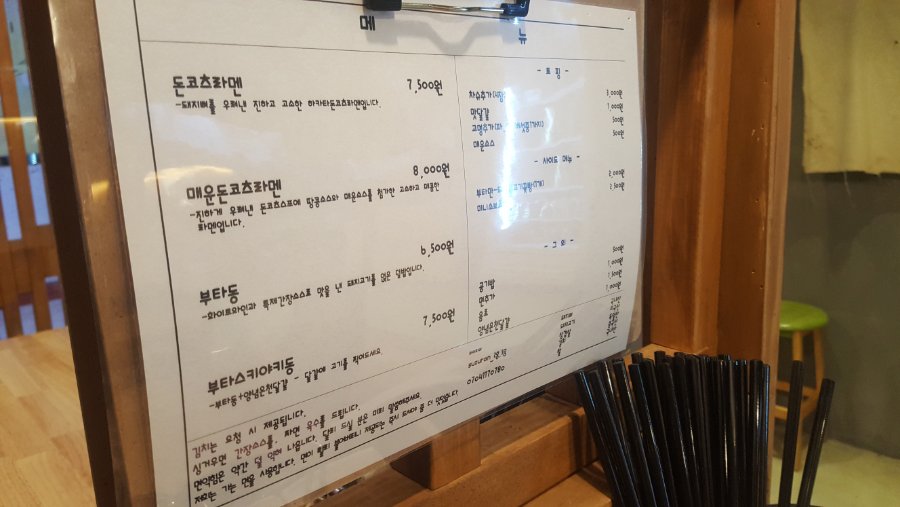 메뉴
돈코츠라멘 7,500원
-돼지뼈를 우려낸 진하고 고소한 하카타돈코츠라멘입니다.
매운돈코츠라멘 8,000원
-진하게 우려낸 돈코츠스프에 땅콩소스와 매운소스를 첨가한 고소하고 매콤한
라멘입니다.
부타동 6,500원
-화이트와인과 특제간장소스로 맛을 낸 돼지고기를 얹은 덮밥입니다.
부타스키야키동 7,500원
-부타동+양념온천달걀 - 달걀에 고기를 찍어드세요.
- 토핑 -
차슈추가 3,000원
맛달걀 1,000원
고명추가 500원
매운소스 500원
- 사이드 메뉴 -
부타만 2,000원
3,500원
- 그 외 -
공기밥
면추가
음료
양념온천달걀
김치는 요청 시 제공됩니다.
싱거우면 간장소스를, 짜면 육수를 드립니다.
면익힘은 약간 덜 익혀 나옵니다. 달리 드실 분은 미리 말씀해주세요.
저희는 가는 면을 사용합니다. 면이 빨리 불어버리니 제공되는 즉시 드셔야 좀 더 맛있습니다.
07041170780